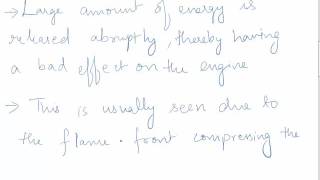 → Large amount of energy is
released abruptly, thereby having
a bad effect on the engine
→ This is usually seen due to
the flame. front compressing the